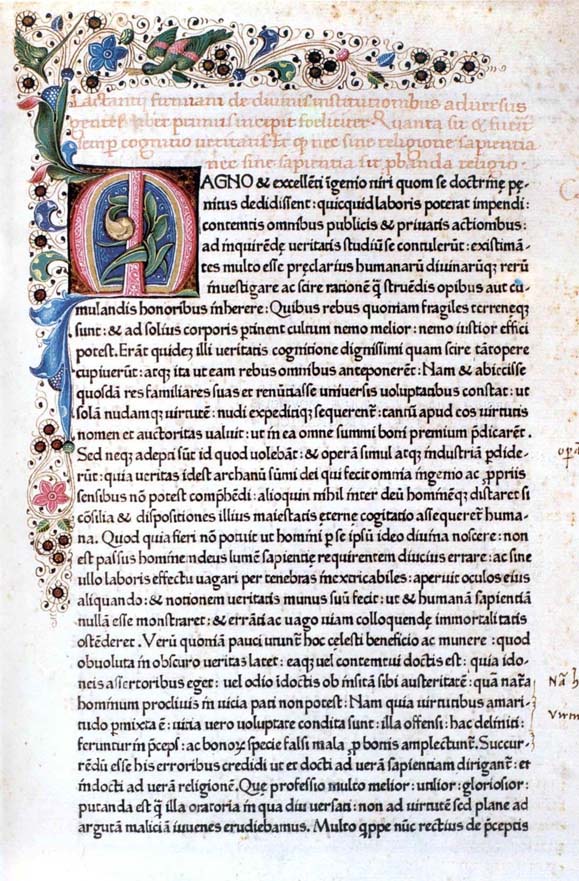 Lactantii firmiani de divinis institutionibus adversus
gentes liber primus incipit foeliciter Quanta sit & fuerit
semp cognitio veritatis Et q̃ nec sine religione sapientia
nec sine sapientia sit pbanda religio.
MAGNO & excellẽti ĩgenio uiri quom se doctrinę pę-
nitus dedidissent: quicquid laboris poterat impendi:
contemtis omnibus publicis & priuatis actionibus:
ad inquirẽdę ueritatis studiũ se contulerũt: existimã-
tes multo esse pręclarius humanarũ diuinarũq; rerũ
inuestigare ac scire rationẽ q̃ struẽdis opibus aut cu-
mulandis honoribus inherere: Quibus rebus quoniam fragiles terreneq;
sunt: & ad solius corporis ꝑtinent cultum nemo melior: nemo iustior effici
potest. Erãt quidẽ illi ueritatis cognitione dignissimi quam scire tãtopere
cupiuerũt: atq; ita ut eam rebus omnibus anteponerẽt: Nam & abiecisse
quosdã res familiares suas et renũtiasse uniuersis uoluptatibus constat: ut
solã nudamq; uirtutẽ: nudi expeditiq; sequerent̃: tantũ apud eos uirtutis
nomen et auctoritas ualuit: ut in ea omne summi boni premium p̃dicarẽt.
Sed neq; adepti sũt id quod uolebãt: & operã simul atq; industriã ꝑdide-
rũt: quia ueritas idest archanũ sũmi dei qui fecit omnia ingenio ac ꝓpriis
sensibus nõ potest compħẽdi: alioquin nihil inter deũ hominẽq; distaret si
cõsilia & dispositiones illius maiestatis eternę cogitatio assequeret̃ huma-
na. Quod quia fieri nõ potuit ut homini ꝑ se ipsũ ideo diuina noscere: non
est passus hominẽ deus lumẽ sapientię requirentem diucius errare: ac sine
ullo laboris effectu uagari per tenebras inextricabiles: aperuit oculos eius
aliquando: & notionem ueritatis munus suũ fecit: ut & humanã sapientiã
nullã esse monstraret: & errãti ac uago uiam colloquendę immortalitatis
ostẽderet. Verũ quoniã pauci utunt̃ hoc cęlesti beneficio ac munere: quod
obuoluta in obscuro ueritas latet: eaq; uel contemtui doctis est: quia ido-
neis assertoribus eget: uel odio ĩdoctis ob insitã sibi austeritatẽ: quã nat̃a
hominum procliuis in uicia pati non potest: Nam quia uirtutibus amari-
tudo ꝑmixta ẽ: uitia uero uoluptate condita sunt: illa offensi: hac deliniti:
feruntur in p̃ceps: ac bonoꝝ specie falsi mala ꝓ bonis amplectunt̃. Succur-
rẽdũ esse his erroribus credidi ut et docti ad uerã sapientiam dirigant̃: et
indocti ad uerã religionẽ. Quę professio multo melior: utilior: gloriosior:
putanda est q̃ illa oratoria in qua diu uersati: non ad uirtutẽ sed plane ad
argutã maliciã iuuenes erudiebamus. Multo q̃ppe nũc rectius de p̃ceptis